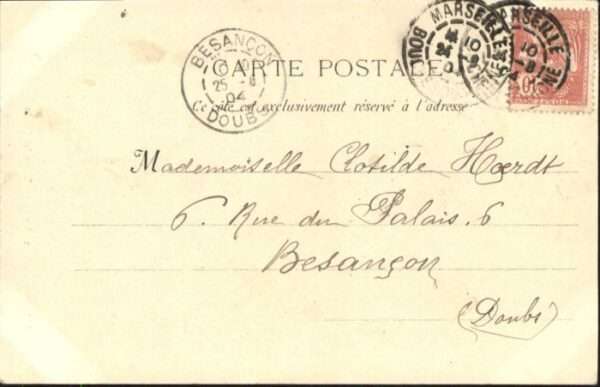 BESANÇON
25 -8
04
DOUBS
MARSEILLE
10
-8
04
MARSEILLE
10
-8
04
10
CARTE POSTALE
Ce côté est exclusivement réservé à l'adresse
Mademoiselle Clotilde Hoerdt
6. Rue du Palais. 6
Besançon
(Doubs)